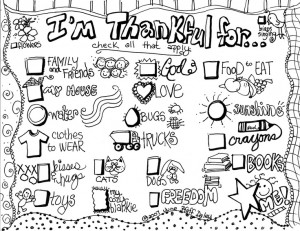 I'm Thankful for...
check all that apply
FLOWERS
FAMILY and Friends
God
FOOD to EAT
my HOUSE
LOVE
water
BUGS
sunshine
clothes to WEAR
TRUCKS
crayons
kisses n hugs
CATS
DOGS
BOOKS
toys
my blankie
FREEDOM
ME!